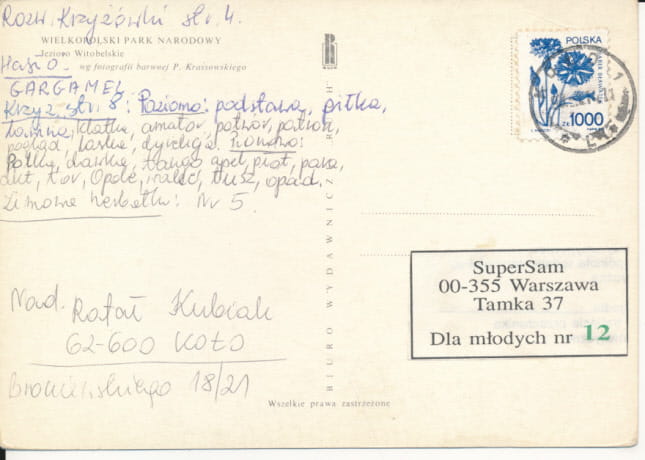 Rozw. Krzyżówki str. 4.
WIELKOPOLSKI PARK NARODOWY
Jezioro Witobelskie
wg fotografii barwnej P. Krassowskiego
Hasło -
GARGAMEL
Krzyż. str. 8: Poziomo: podstawa, piłka,
klatka, amator, potwór, patron,
pogląd, laska, dyrekcja. Pionowo:
Półka, dawka, tango, apel, piąt, para,
lut, tor, Opole, tusz, opad.
Zimowe herbatki: Nr 5.
Nad. Rafał Kubiak
62-600 KOŁO
Broniewskiego 18/21
BIURO WYDAWNICZE RUCH
Wszelkie prawa zastrzeżone
POLSKA
ZŁ 1000
SuperSam
00-355 Warszawa
Tamka 37
Dla młodych nr 12